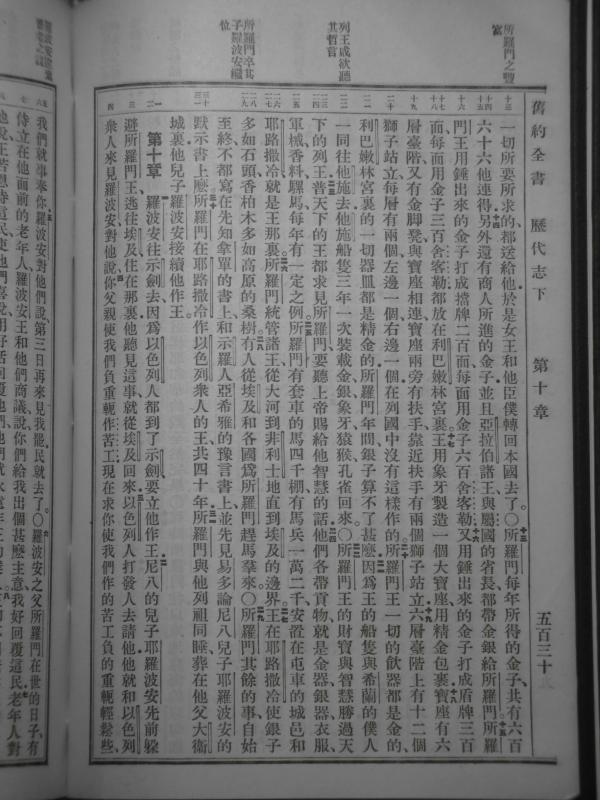 舊約全書 歷代志下 第十章 五百三十
所羅門之豐富
列王咸欲聽其哲言
所羅門卒其子羅波安繼位
一切所要所求的都送給他於是女王和他臣僕轉回本國去了〇所羅門每年所得的金子共有六百
六十六他連得另外還有商人所進的金子並且亞拉伯諸王與屬國的省長都帶金銀給所羅門所羅
門王用錘出來的金子打成擋牌二百面每面用金子六百舍客勒又用錘出來的金子打成盾牌三百
面每面用金子三百舍客勒都放在利巴嫩林宮裏王用象牙製造一個大寶座用精金包裹寶座有六
層臺階又有金腳凳與寶座相連寶座兩旁有扶手靠近扶手有兩個獅子站立六層臺階上有十二個
獅子站立每層有兩個左邊一個右邊一個在列國中沒有這樣作的所羅門王一切的飲器都是金的
利巴嫩林宮裏的一切器皿都是精金的所羅門年間銀子算不了甚麼因爲王的船隻與希蘭的僕人
一同往他施去他施船隻三年一次裝載金銀象牙猿猴孔雀回來〇所羅門王的財寶與智慧勝過天
下的列王普天下的王都求見所羅門要聽上帝賜給他智慧的話他們各帶貢物就是金器銀器衣服
軍械香料騾馬每年有一定之例所羅門有套車的馬四千棚有馬兵一萬二千安置在屯車的城邑和
耶路撒冷就是王那裏所羅門統管諸王從大河到非利士地直到埃及的邊界王在耶路撒冷使銀子
多如石頭香柏木多如高原的桑樹有人從埃及和各國爲所羅門趕馬羣來〇所羅門其餘的事自始
至終不都寫在先知拿單的書上和示羅人亞希雅的豫言書上並先見易多論尼八兒子耶羅波安的
默示書上麼所羅門在耶路撒冷作以色列衆人的王共四十年所羅門與他列祖同睡葬在他父大衛
城裏他兒子羅波安接續他作王
第十章 羅波安往示劍去因爲以色列人都到了示劍要立他作王尼八的兒子耶羅波安先前躱
避所羅門王逃往埃及住在那裏他聽見這事就從埃及回來以色列人打發人去請他他就和以色列
衆人來見羅波安對他說你父親使我們負重軛作苦工現在求你使我們作的苦工負的重軛輕鬆些
我們就事奉你羅波安對他們說第三日再來見我罷民就去了〇羅波安之父所羅門在世的日子有
侍立在他面前的老年人羅波安王和他們商議說你們給我出個甚麼主意我好回覆這民老年人對